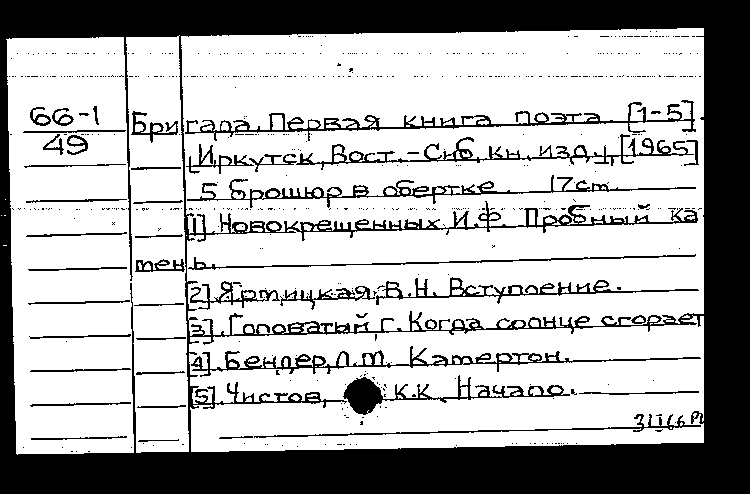 66-1
49
Бригада. Первая книга поэта. [1-5].
[Иркутск, Вост.-Сиб. кн. изд.], [1965]
5 брошюр в обертке. 17 cm.
[1]. Новокрещенных, И.Ф. Пробный ка
тень.
[2]. Яртицкая, В.Н. Вступление.
[3]. Головатый, Г. Когда солнце сгорает
[4]. Бендер, Л.М. Камертон.
[5]. Чистов, К.К. Начало.